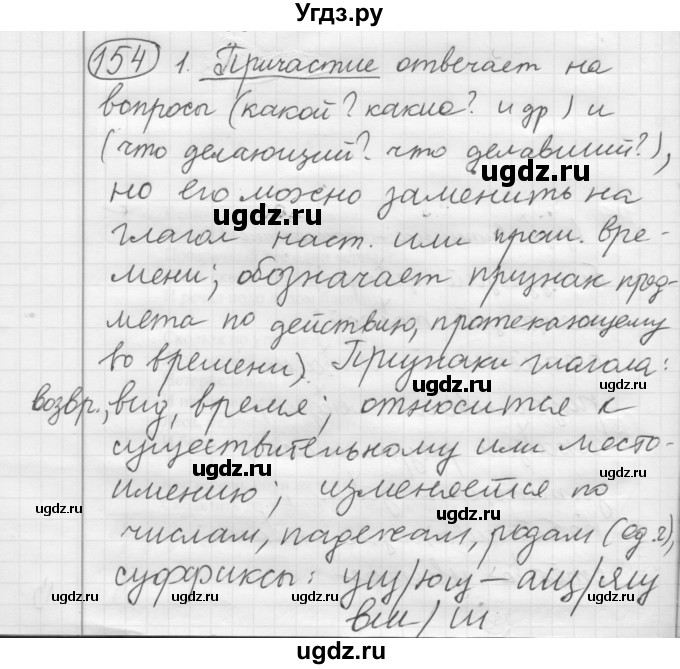 Угдз.ру
154 1. Причастие отвечает на
вопросы (какой? какие? и др) и
(что делающий? что делавший?),
но его можно заменить на
ugdz.ru
глагол наст. или прош. вре-
ugdz.ru
мени; обозначает признак пред-
мета по действию, протекающему
во времени). Признаки глагола:
ugdz.ru ugdz.ru
возвр., вид, время; относится к
существительному или место-
ugdz.ru
имению; изменяется по
ugdz.ru ugdz.ru
числам, падежам, родам (ед.ч),
суффиксы: ущ/ющ – ащ/ящ
ugdz.ru ugdz.ru ugdz.ru
вш/ш
ugdz.ru